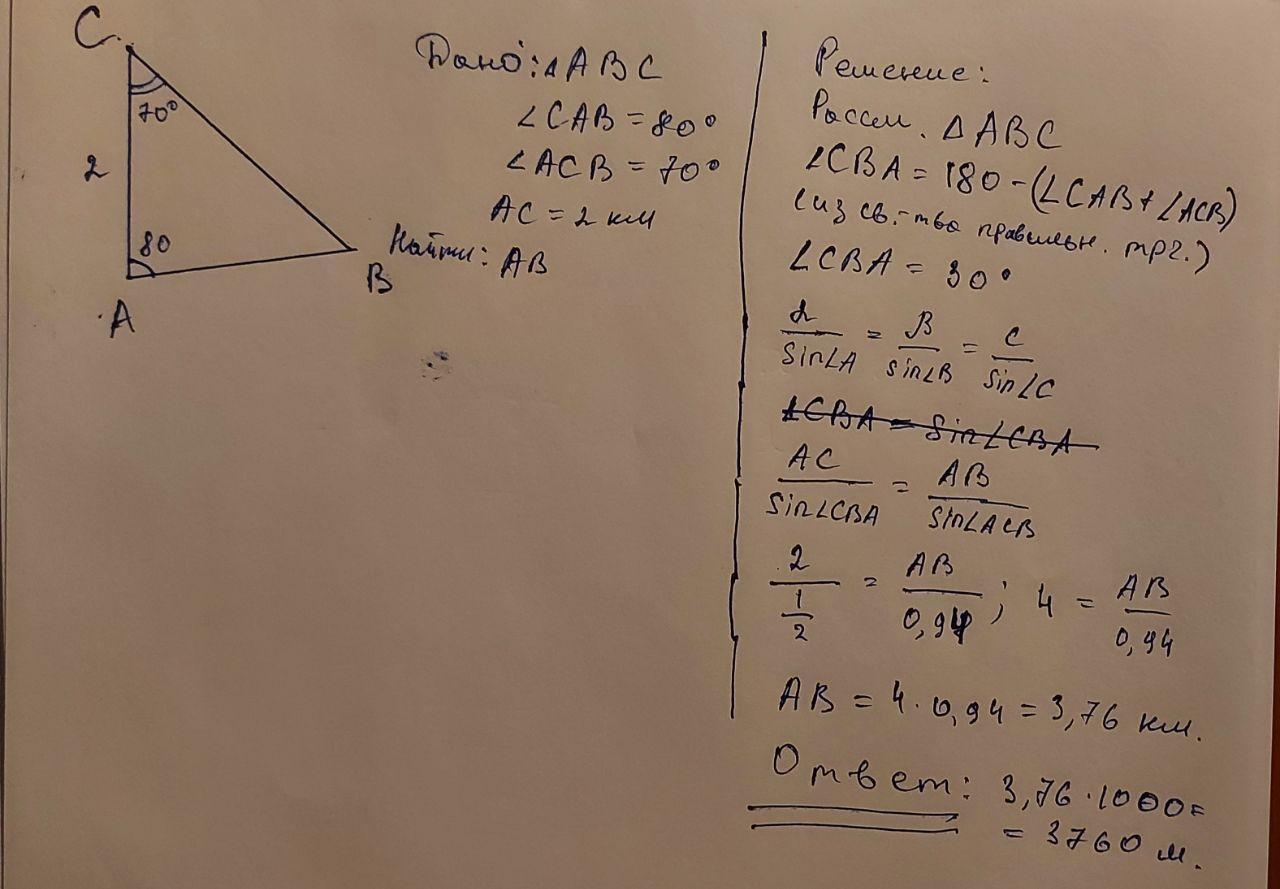 C
70°
2
80
A
B
Дано: △ABC
∠CAB = 80°
∠ACB = 70°
AC = 2 км
Найти: AB
Решение:
Рассм. △ABC
∠CBA = 180 - (∠CAB + ∠ACB)
(из св.-тва правильн. трг.)
∠CBA = 30°
a/sin∠A = B/sin∠B = c/sin∠C
∠CBA = sin∠CBA
AC/sin∠CBA = AB/sin∠ACB
2/(1/2) = AB/0,94 ; 4 = AB/0,94
AB = 4 · 0,94 = 3,76 км.
Ответ: 3,76 · 1000 =
= 3760 м.